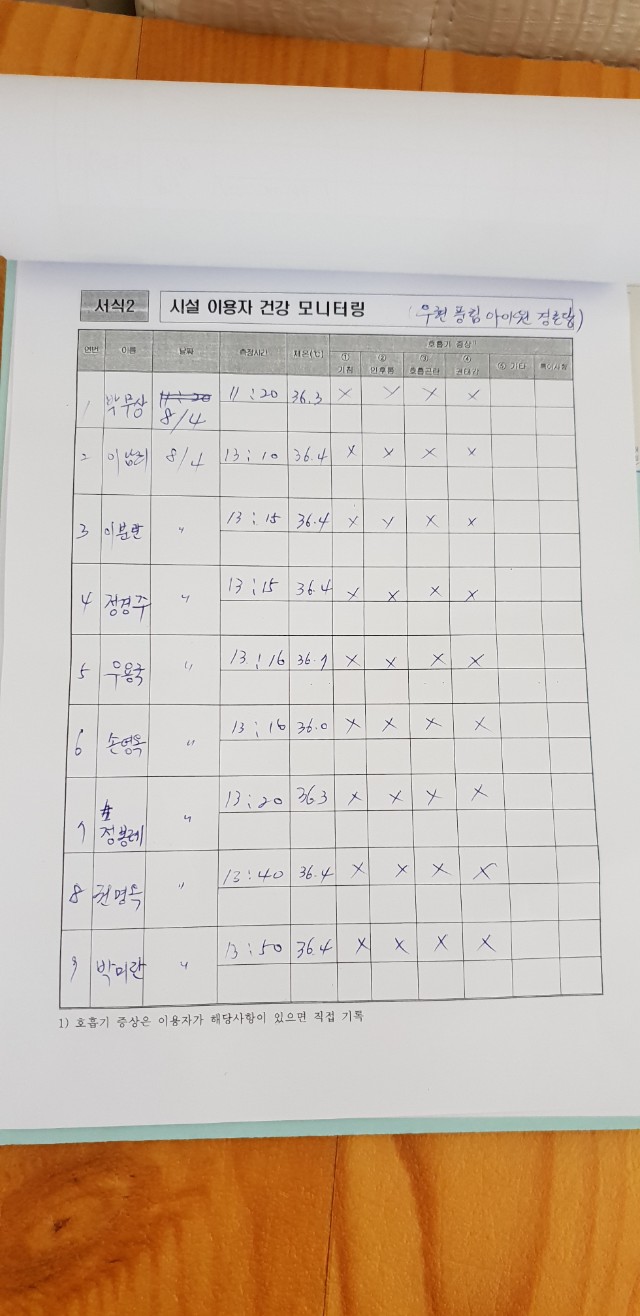 서식2 시설 이용자 건강 모니터링 (우현 풍림 아이원 경로당)
연번 이름 날짜 측정시간 체온(℃) 호흡기 증상¹⁾
① 기침 ② 인후통 ③ 호흡곤란 ④ 권태감 ⑤ 기타 특이사항
1 박무상 8/4 11:20 36.3 X X X X
2 8/4 13:10 36.4 X X X X
3 이분란 〃 13:15 36.4 X X X X
4 정경주 〃 13:15 36.4 X X X X
5 우용국 〃 13:16 X X X X
6 손영옥 〃 13:16 36.0 X X X X
7 정봉례 〃 13:20 363 X X X X
8 권명옥 〃 13:40 36.4 X X X X
9 박미란 〃 13:50 36.4 X X X X
1) 호흡기 증상은 이용자가 해당사항이 있으면 직접 기록